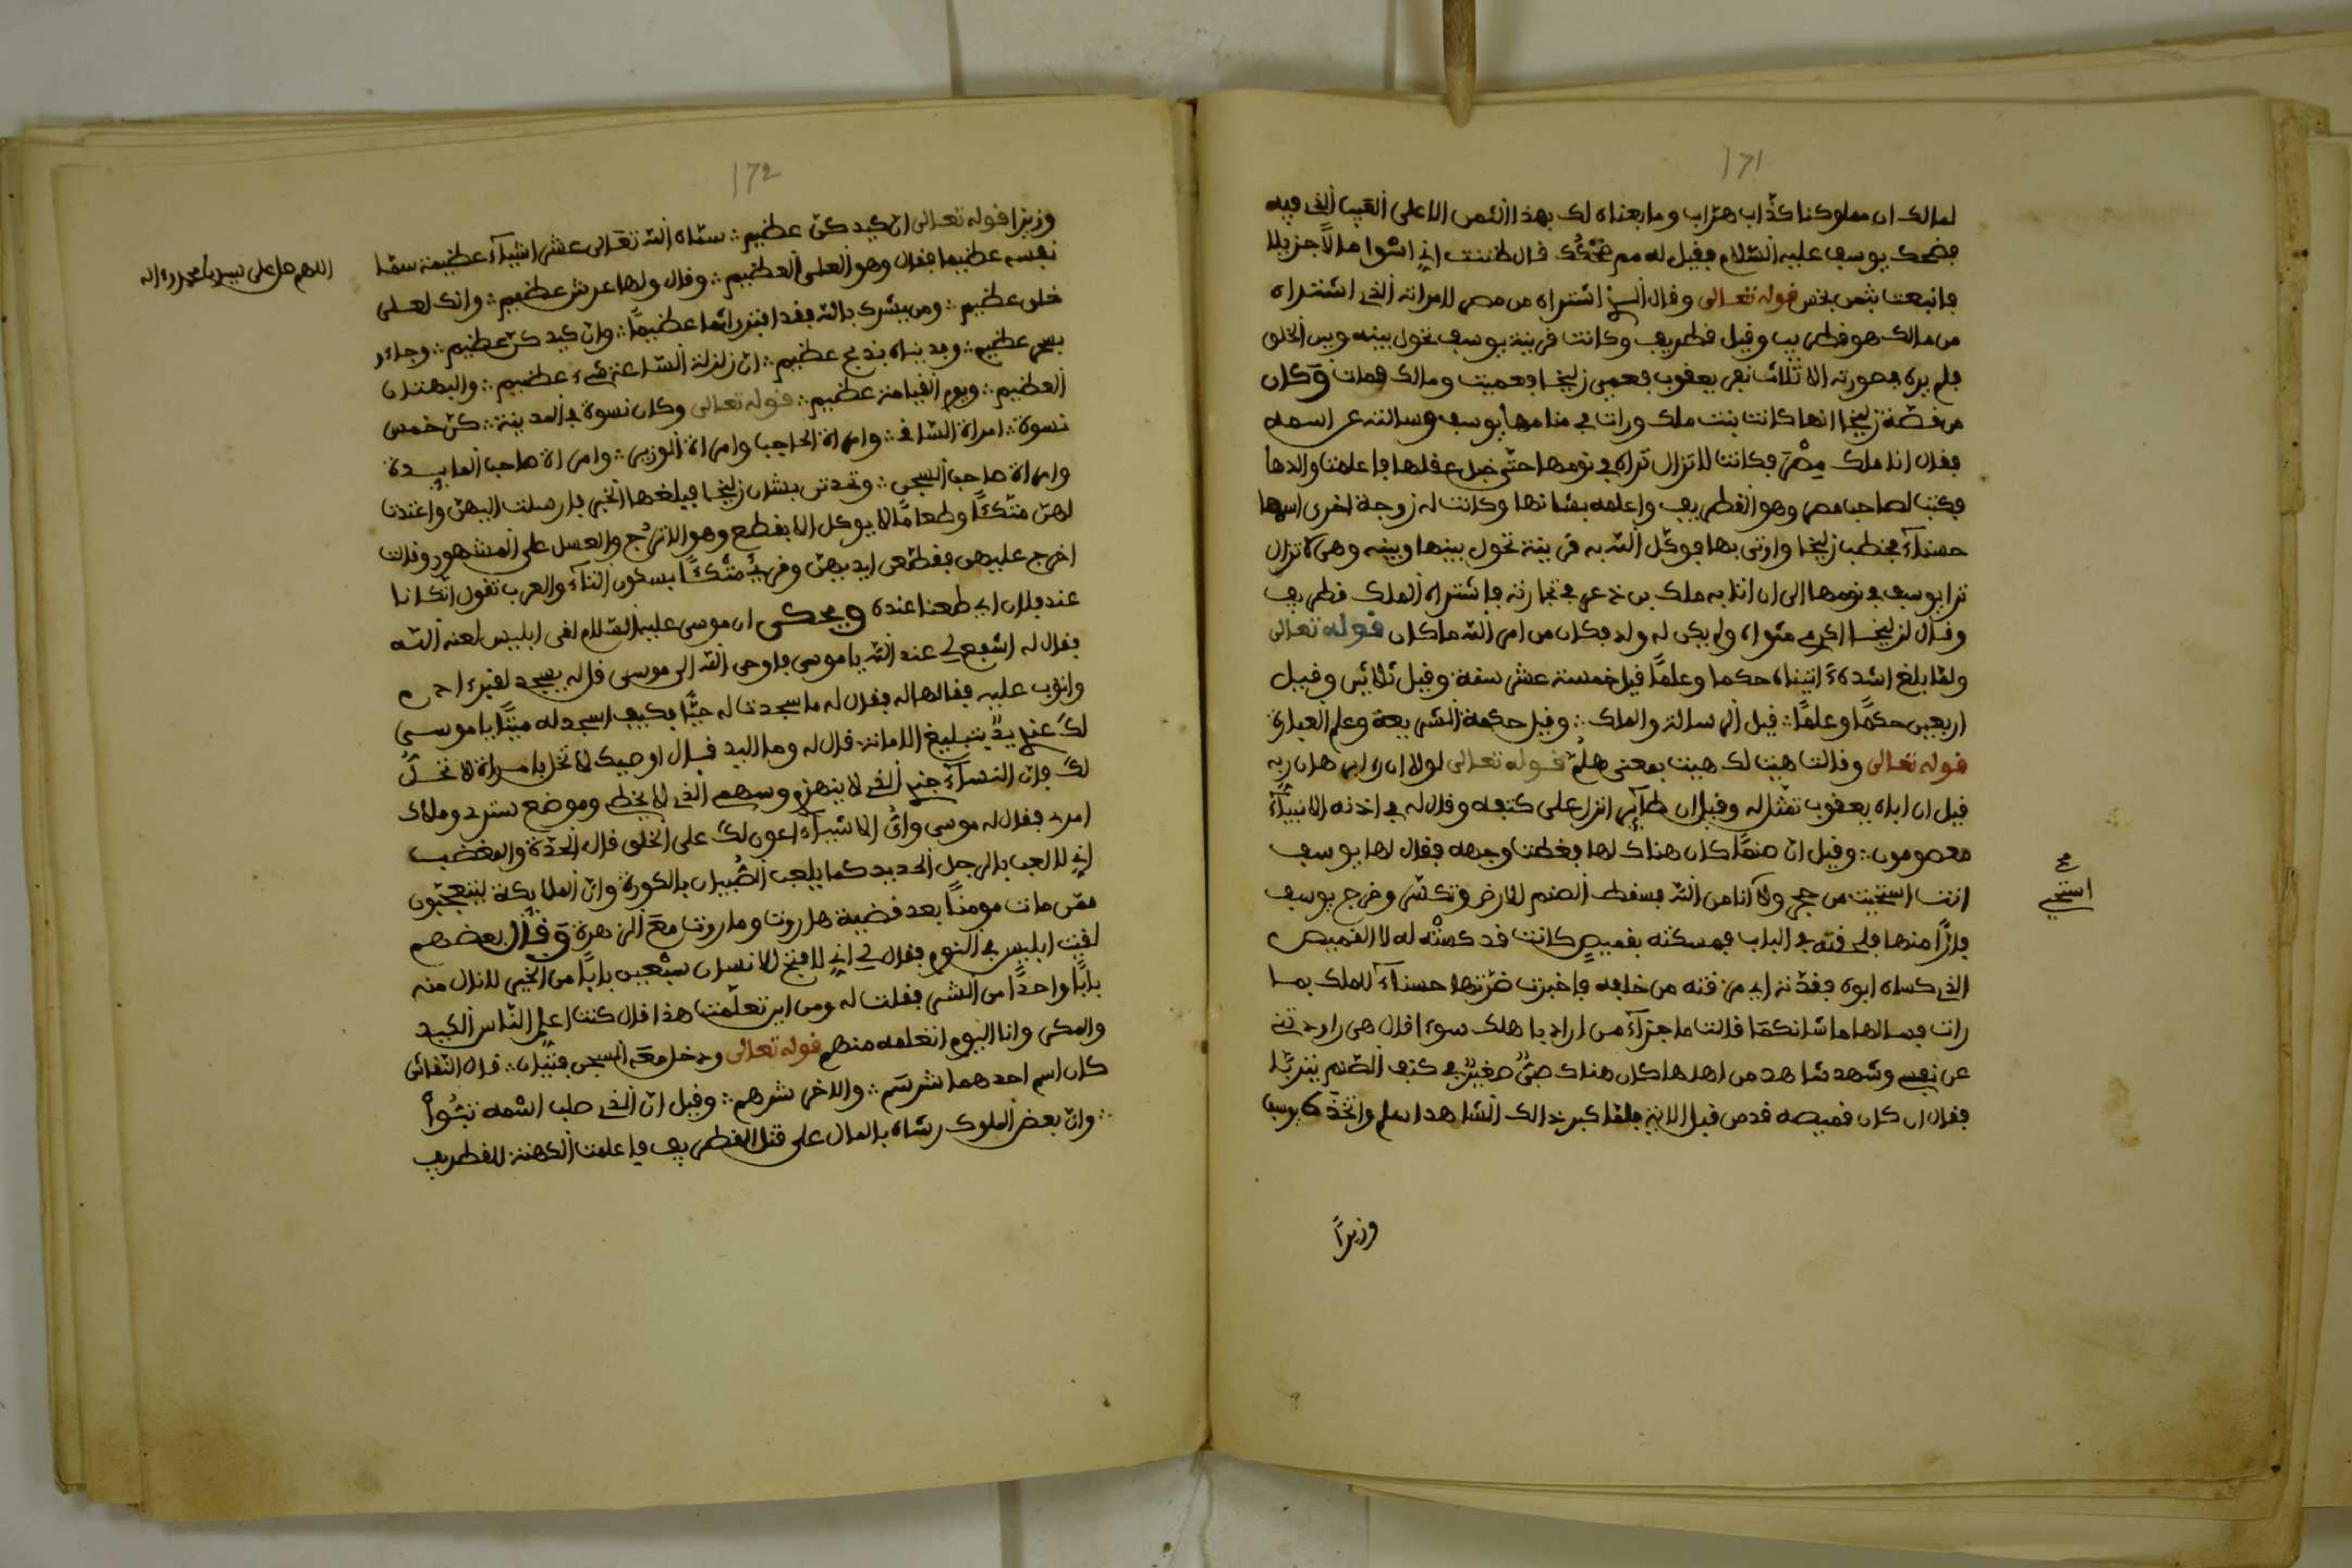 171
لمالك ان مملوكنا كذّاب هرّاب وما بعناه لك بهذا الثمن الا على العيب الذي فيه
فضحك يوسف عليه السّلام فقيل له مم ضحكك قال ظننت اني اسوا مالًا جزيلا
فانبعت بثمن بخس قوله تعالى وقال الذي اشتراه من مصر لامراته الذي اشتراه
من مالك هو قطريب وقيل قطريف وكانت قرينة يوسف تحول بينه وبين الخلق
فلم يره بصورته الا ثلاث نفر يعقوب فعمي زليخا فعميت ومالك فمات وكان
من قصّة زليخا انها كانت بنت ملك ورات في منامها يوسف وسالته عن اسمه
فقال انا ملك مِصْرَ فكانت لا تزال تراه في نومها حتّى خبل عقلها فاعلمت والدها
فكتب لصاحب مصر وهو القطريف واعلمه بشانها وكانت له زوجة اخرى اسمها
حسناء فخطب زليخا واوتى بها فوكّل الله به قرينة تحول بينها وبينه وهي لا تزال
ترا يوسف في نومها الى ان اتا به ملك بن ذعر في تجارته فاشتراه الملك قطريف
وقال لزليخا اكرمي مثواه ولم يكن له ولد فكان من امر الله ما كان قوله تعالى
ولمّا بلغ اشده ءاتيناه حكما وعلمًا قيل خمسة عشر سنة وقيل ثلاثين وقيل
اربعين حكمًا وعلمًا قيل الرسالة والملك وقيل حكمة الشريعة وعلم العبارة
قوله تعالى وقالت هيت لك هيت بمعنى هلم قوله تعالى لولا ان راى برهان ربه
قيل ان اباه يعقوب تمثّل له وقيل ان طائر انزل على كتفه وقال له في اذنه الانبياء
معصومون وقيل انّ صنمًا كان هناك لها فغطت وجهه فقال لها يوسف
انت استحيت من حجر ولا انا من الله فسقط الصنم للارض وتكسّر وخرج يوسف
فارًّا منها فلحقته في الباب فمسكته بقميص كانت قد كسته له لا القميص
الذي كساه ابوه فقدّته اي مزقته من خلفه فاخبرت ضرّتها حسناء للملك بما
رات فسالها ما شانكما قالت ما جزاء من اراد باهلك سوءا قال هي راودتني
عن نفسي وشهد شاهد من اهلها كان هناك صبيّ صغير في كتف الصّنم يتربّا
فقال ان كان قميصه قد من قبل الاية فلمّا كبر ذالك الشاهد اسلم واتّخذه يوسف
وزيرًا
صح
استحي
172
وزيرا قوله تعالى انّ كيدكنّ عظيم سمّاه الله تعالى عشر اشياء عظيمة سمّا
نفسه عظيما فقال وهو العلي العظيم وقال ولها عرش عظيم وانك لعلى
خلق عظيم ومن يشرك بالله فقد افترى اثما عظيمًا وانّ كيدكنّ عظيم وجاءو
بسحر عظيم وفديناه بذبح عظيم انّ زلزلة السّاعة شيء عظيم والبهتان
العظيم ويوم القيامة عظيم قوله تعالى وكان نسوة في المدينة كنّ خمس
نسوة امراة السّاقي وامراة الحاجب وامراة الوزير وامراة صاحب المايدة
وامراة صاحب السجن وتحدثن بشان زليخا فبلغها الخبر فارسلت اليهنّ واعتدت
لهنّ متّكئًا وطعامًا لا يوكل الا بقطع وهو الاترج والعسل على المشهور وقالت
اخرج عليهن فقطّعن ايديهنّ وقرئ متْكئًا بسكون التاء والعرب تقول اتكانا
عند فلان اي طعمنا عنده ويحكى ان موسى عليه السّلام لقى ابليس لعنه الله
فقال له اشفع لي عند الله يا موسى فاوحى الله الى موسى قل له يسجد لقبر ادم
واتوب عليه فقالها له فقال له ما سجدت له حيًّا فكيف اسجد له ميّتًا يا موسى
لك عندي يدٌ بتبليغ الامانة قال له وما اليد قال اوصيك لا تخل بامراة لا تحلّ
لك فان النساء جندي الذي لا ينهزم وسهمي الذي لا يخطي وموضع سترى وملاك
امرى فقال له موسى وايّ الاشياء اعون لك على الخلق قال الحدّة والغضب
اني لالعب بالرجل الحديد كما يلعب الصّبيان بالكورة وانّ الملايكة ليتعجّبون
ممّن مات مومنًا بعد قضية هاروت وماروت مع الزهرة وقال بعضهم
لقيت ابليس في النوم فقال لي اني لافتح للانسان سبعين بابًا من الخير لانال منه
بابًا واحدًا من الشر فقلت له ومن اين تعلّمت هذا قال كنت اعلم النّاس الكيد
والمكر وانا اليوم اتعلمه منهم قوله تعالى ودخل معه السجن فتيان قال النقاش
كان اسم احدهما شرسم والاخر شرهم وقيل انّ الذي صلب اسمه نبُوا
وانّ بعض الملوك رشاه بالمال على قتل القطريف فاعلمت الكهنة للقطريف
اللهم صل على سيدنا محمد وءاله